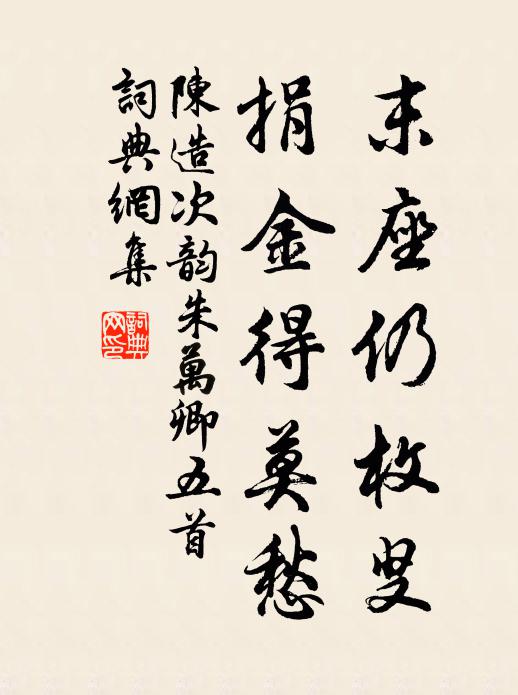 末座仍枚叟
捐金得莫愁
陳造次韵朱萬卿五首
詞典網集
詞典網印